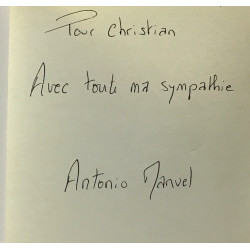 Pour Christian
Avec toute ma sympathie
Antonio Manuel